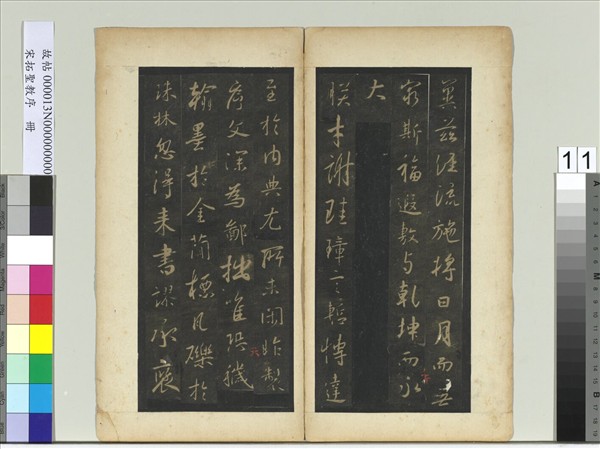 冀茲經流施將日月而無
窮斯福遐敷與乾坤而永
大
朕才謝珪璋言慚博達
至於內典尤所未閑昨製
序文深為鄙拙唯恐穢
翰墨於金簡標瓦礫於
珠林忽得來書謬承褒
故帖 000013N000000000
宋拓聖教序 冊
11